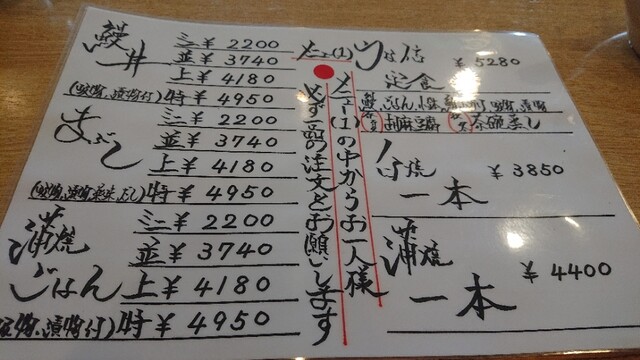 鰻丼
ミニ ¥ 2200
並 ¥ 3740
上 ¥ 4180
(吸物、漬物付) 特 ¥ 4950
まぶし
ミニ ¥ 2200
並 ¥ 3740
上 ¥ 4180
特 ¥ 4950
蒲焼ごはん
ミニ ¥ 2200
並 ¥ 3740
上 ¥ 4180
(吸物、漬物付) 特 ¥ 4950
メニュー(1)
メニュー(1)の中からお一人様
必ず一品ご注文をお願いします
定食
¥ 5280
胡麻豆腐
茶碗蒸し
白焼一本
¥ 3850
蒲焼一本
¥ 4400